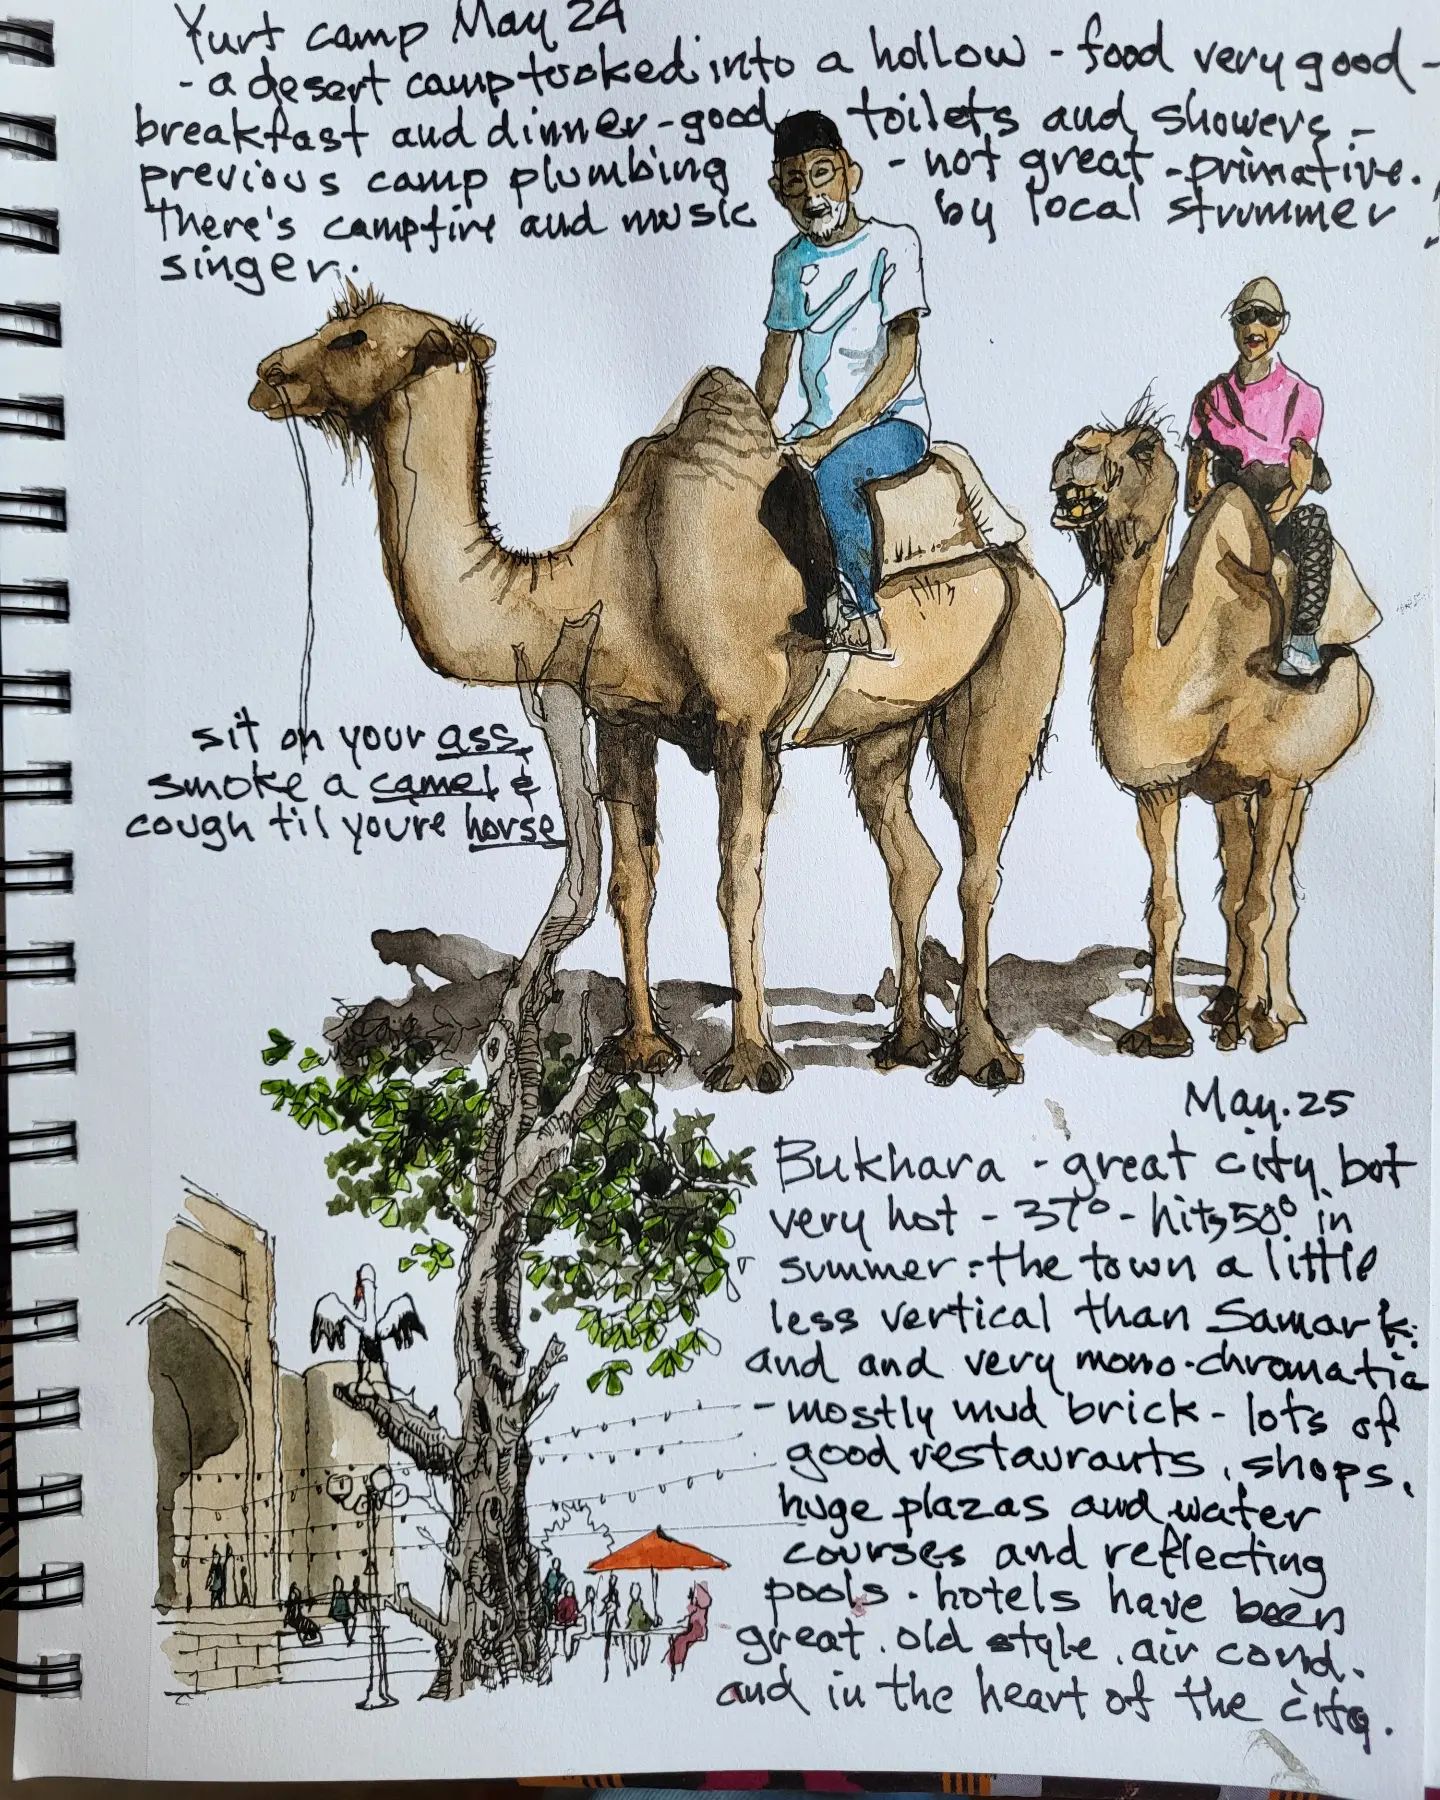 Yurt camp May 24
- a desert camp tucked into a hollow - food very good -
breakfast and dinner - good toilets and showers -
previous camp plumbing - not great - primative.
There's campfire and music by local strummer
singer.
sit on your ass
smoke a camel &
cough til youre horse
May. 25
Bukhara - great city bot
very hot - 37° - hits 50° in
summer - the town a little
less vertical than Samark.
and and very mono-chromatic
- mostly mud brick - lots of
good restaurants, shops,
huge plazas and water
courses and reflecting
pools. hotels have been
great. old style. air cond.
and in the heart of the city.